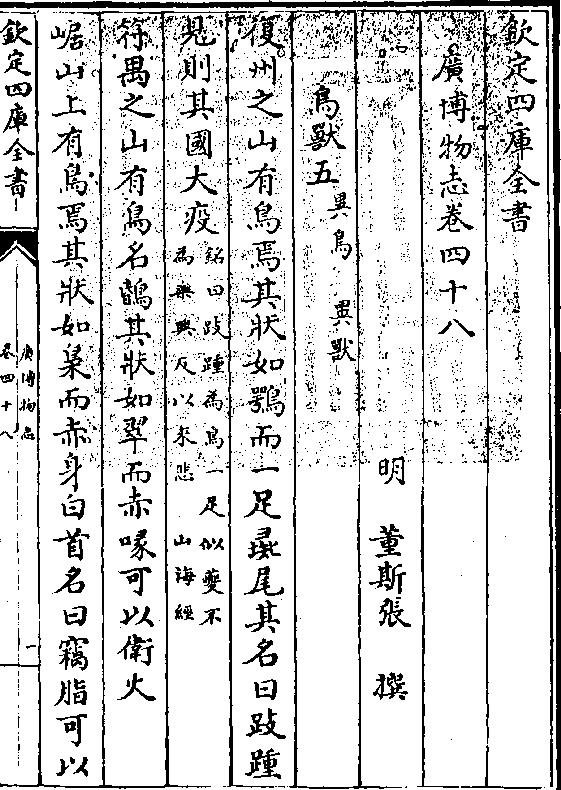 欽定四庫全書
廣博物志卷四十八
明 董斯張 撰
鳥獸五 異鳥 異獸
復州之山有鳥焉其狀如鴞而一足彘尾其名曰跂踵
見則其國大疫 銘曰跂踵為鳥一足似夔不
為樂興反以來悲 山海經
符禺之山有鳥名鴖其狀如翠而赤喙可以衛火
崌山上有鳥焉其狀如梟而赤身白首名曰竊脂可以
欽定四庫全書
廣博物志
卷四十八
一